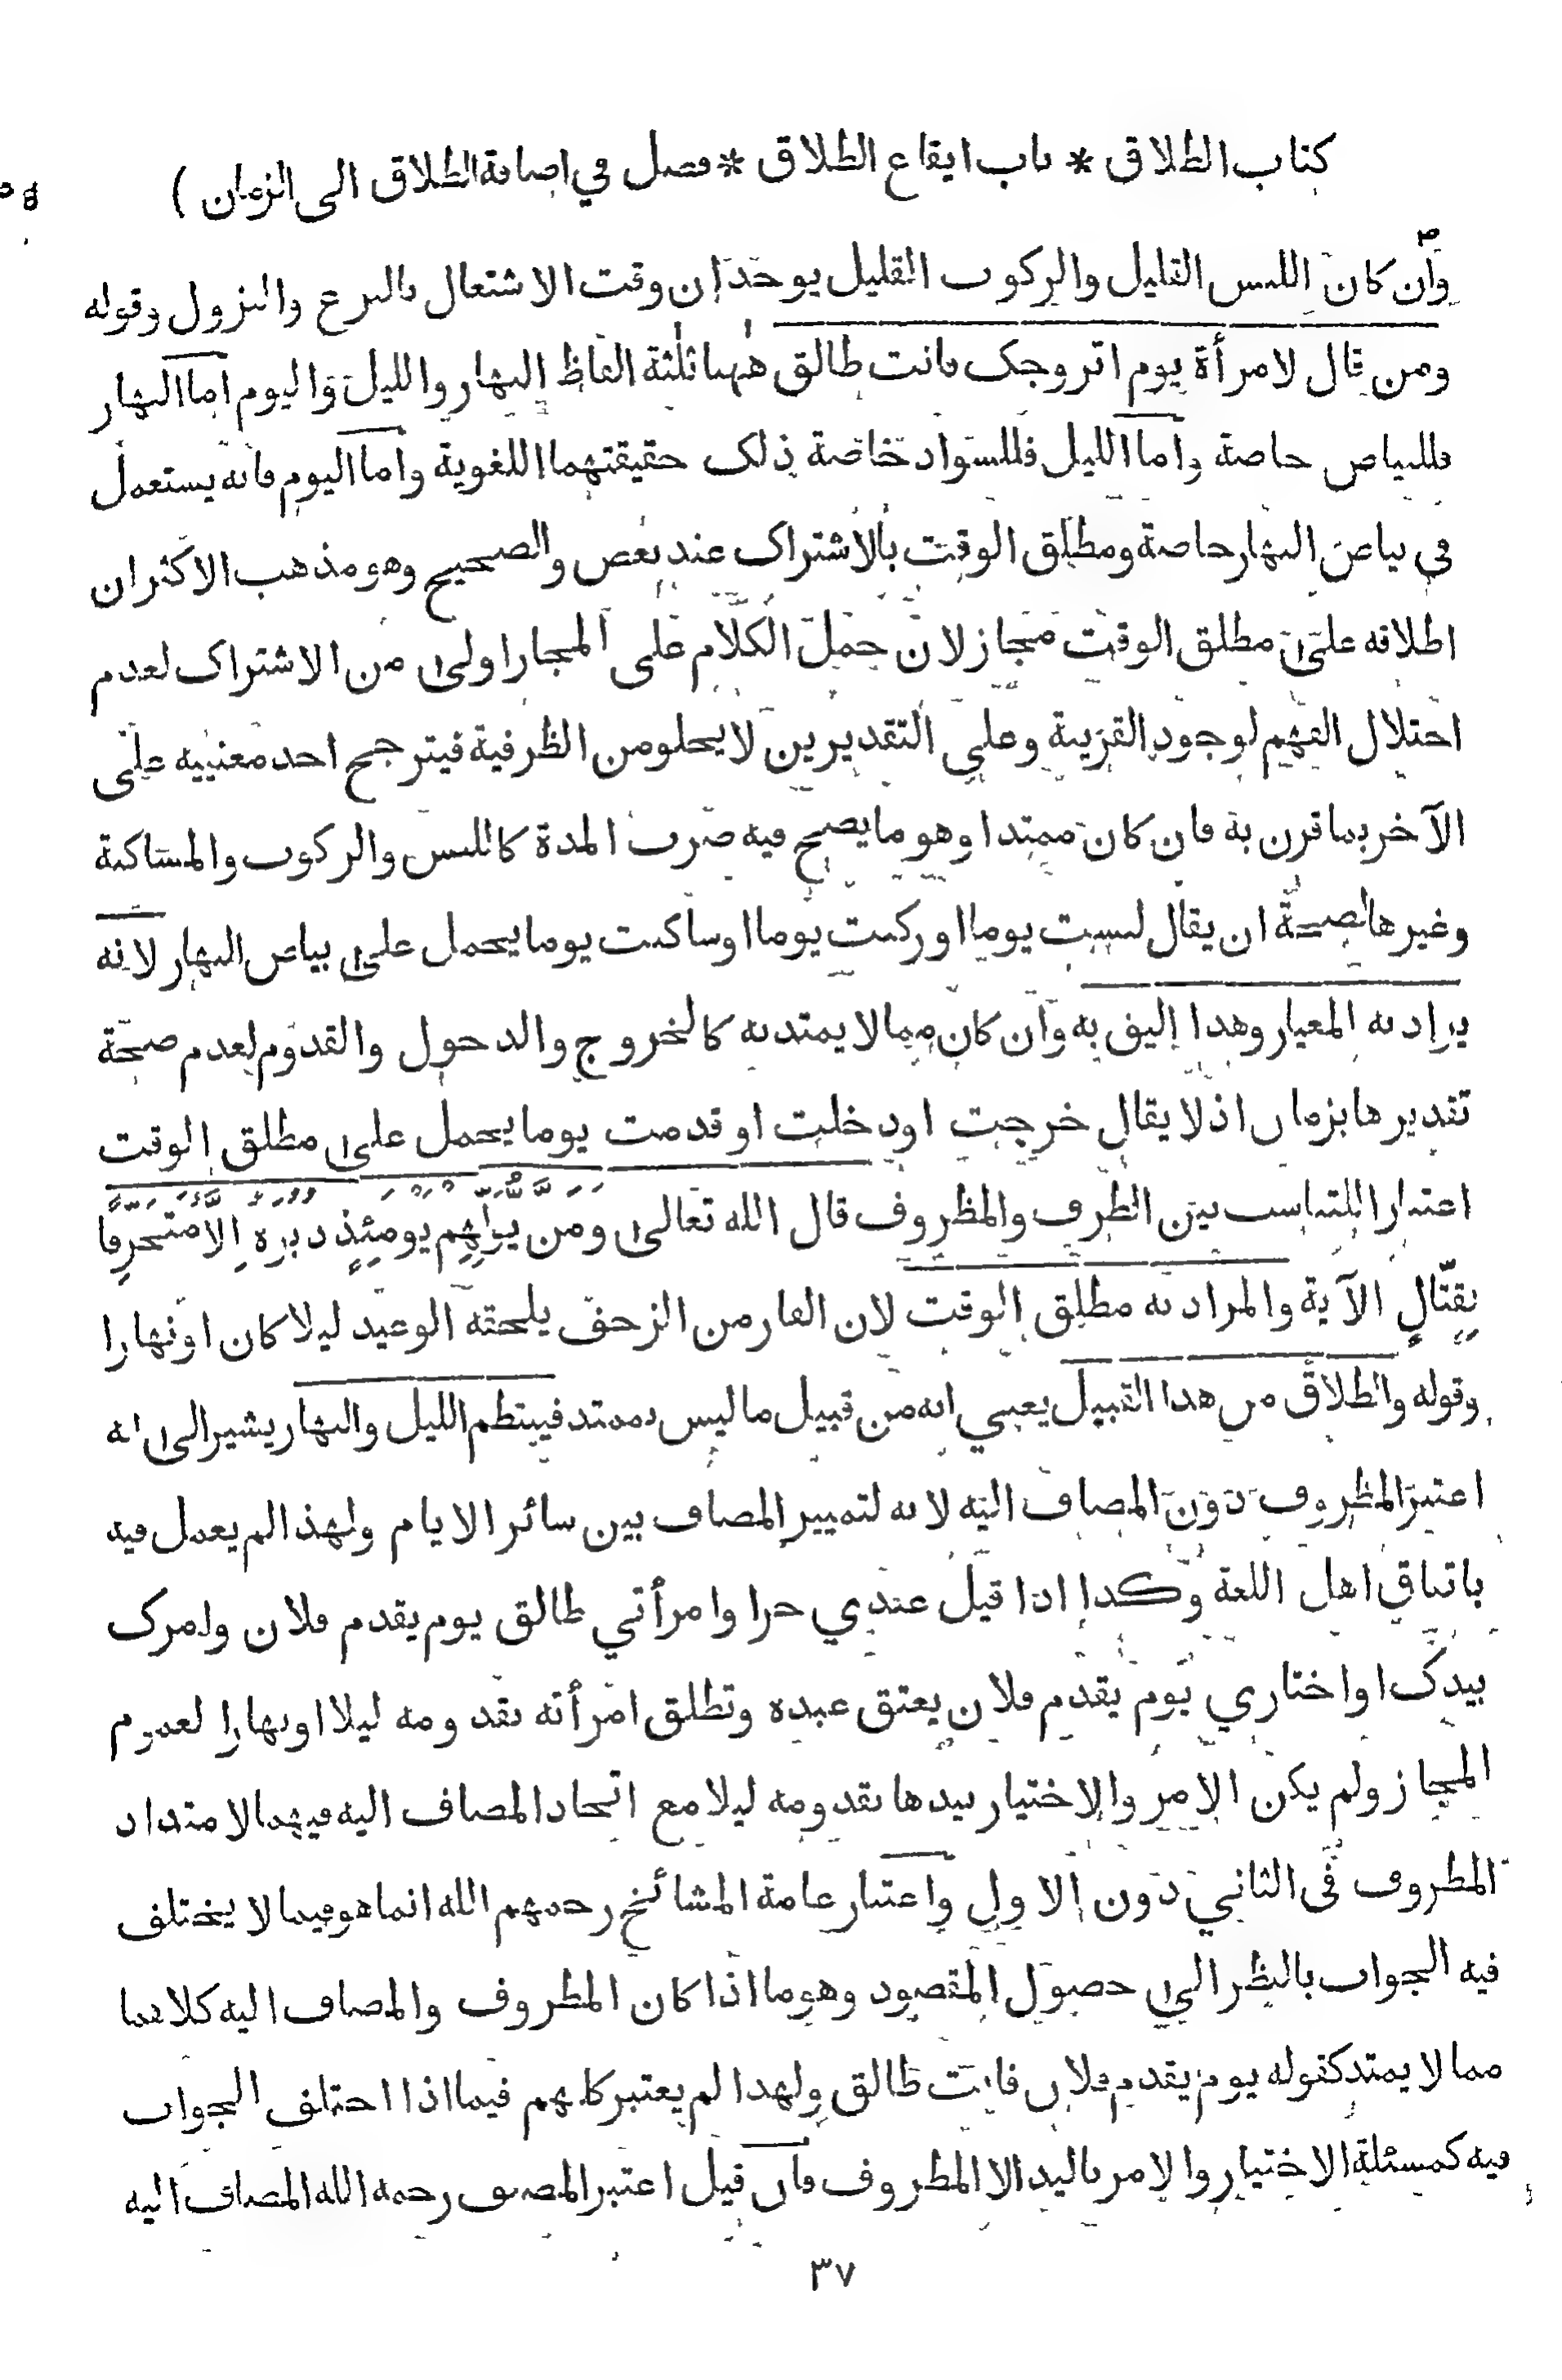 كتاب الطلاق * باب ايقاع الطلاق * فصل في اضافة الطلاق الى الزمان )
وان كان اللبس القليل والركوب القليل يوجدان وقت الاشتغال بالنزع والنزول وقوله
ومن قال لامرأة يوم اتزوجك فانت طالق ههنا ثلثة الفاظ النهار والليل واليوم اما النهار
فللبياض خاصة واما الليل فللسواد خاصة ذلك حقيقتهما اللغوية واما اليوم فانه يستعمل
في بياض النهار خاصة ومطلق الوقت بالاشتراك عند بعض والصحيح وهو مذهب الاكثر ان
اطلاقه على مطلق الوقت مجاز لان حمل الكلام على المجاز اولى من الاشتراك لعدم
اختلال الفهم لوجود القرينة وعلى التقديرين لا يخلو من الظرفية فيترجح احد معنييه على
الآخر بما قرن به فان كان ممتدا وهو ما يصح فيه ضرب المدة كاللبس والركوب والمساكنة
وغيرها لصحة ان يقال لبست يوما او ركبت يوما او ساكنت يوما يحمل على بياض النهار لانه
يراد به المعيار وهذا اليق به وان كان مما لا يمتد به كالخروج والدخول والقدوم لعدم صحة
تقديرها بزمان اذ لا يقال خرجت او دخلت او قدمت يوما يحمل على مطلق الوقت
اعتبارا للتناسب بين الظرف والمظروف قال الله تعالى ومن يولهم يومئذ دبره الا متحرفا
لقتال الآية والمراد به مطلق الوقت لان الفار من الزحف يلحقه الوعيد ليلا كان او نهارا
وقوله والطلاق من هذا القبيل يعني انه من قبيل ما ليس بممتد فينتظم الليل والنهار يشير الى انه
اعتبر المظروف دون المضاف اليه لانه لتمييز المضاف بين سائر الايام ولهذا لم يعمل فيه
باتفاق اهل اللغة وكذا اذا قيل عندي حر او امرأتي طالق يوم يقدم فلان وامرك
بيدك او اختاري يوم يقدم فلان يعتق عبده وتطلق امرأته بقدومه ليلا او نهارا لعموم
المجاز ولم يكن الامر والاختيار بيدها بقدومه ليلا مع اتحاد المضاف اليه فيهما لامتداد
المظروف فى الثاني دون الاول واعتبار عامة المشائخ رحمهم الله انما هو فيما لا يختلف
فيه الجواب بالنظر الى حصول المقصود وهو ما اذا كان المظروف والمضاف اليه كلاهما
مما لا يمتد كقوله يوم يقدم فلان فانت طالق ولهذا لم يعتبر كلهم فيما اذا اختلف الجواب
فيه كمسئلة الاختيار والامر باليد الا المظروف فان قيل اعتبر المصنف رحمه الله المضاف اليه
٣٧